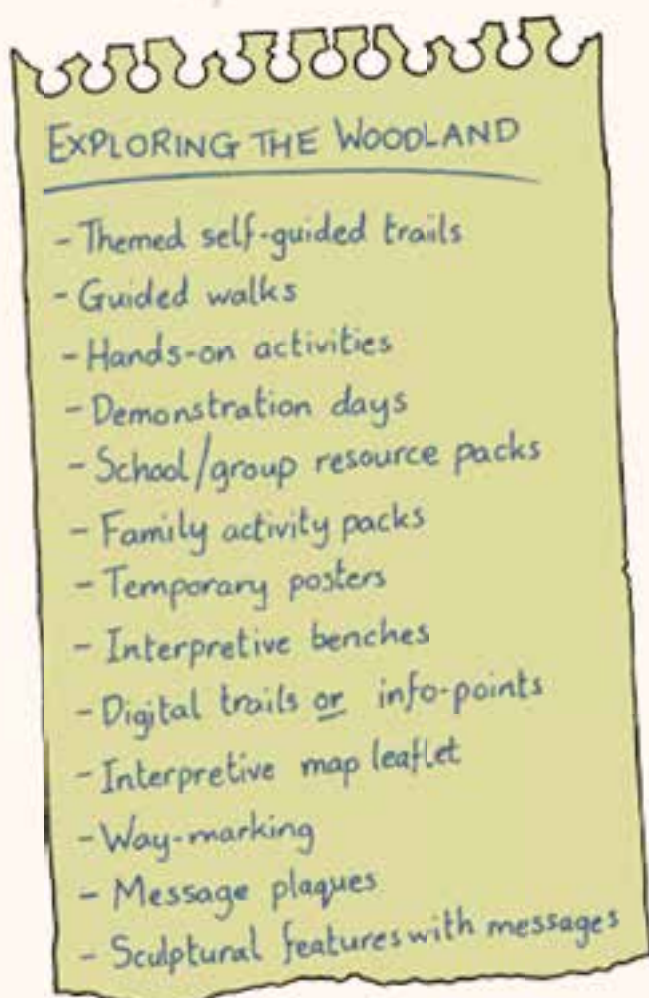 EXPLORING THE WOODLAND
- Themed self-guided trails
- Guided walks
- Hands-on activities
- Demonstration days
- School/group resource packs
- Family activity packs
- Temporary posters
- Interpretive benches
- Digital trails or info-points
- Interpretive map leaflet
- Way-marking
- Message plaques
- Sculptural features with messages